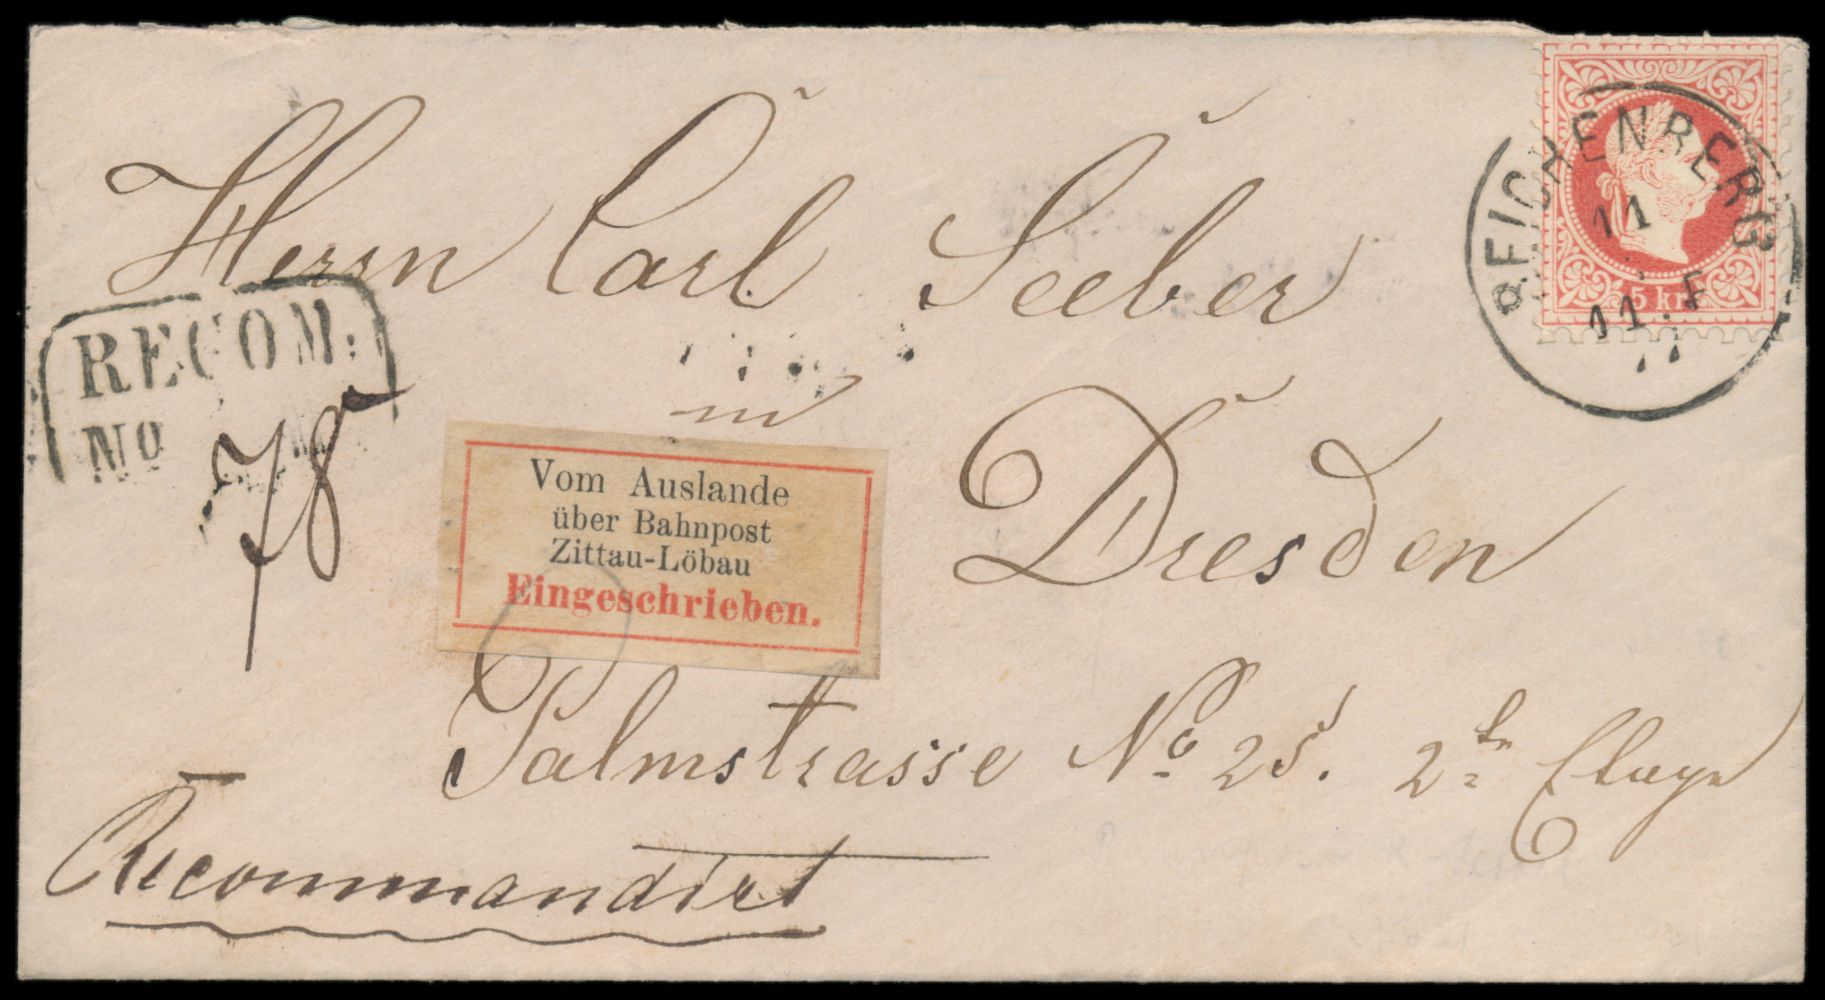 Herrn Carl Seeber
REICHENBERG
11
11. F
5 kr
RECOM:
No 78
in
Dresden
Vom Auslande
über Bahnpost
Zittau-Löbau
Eingeschrieben.
Palmstrasse No 25. 2te Etage
Recommandirt